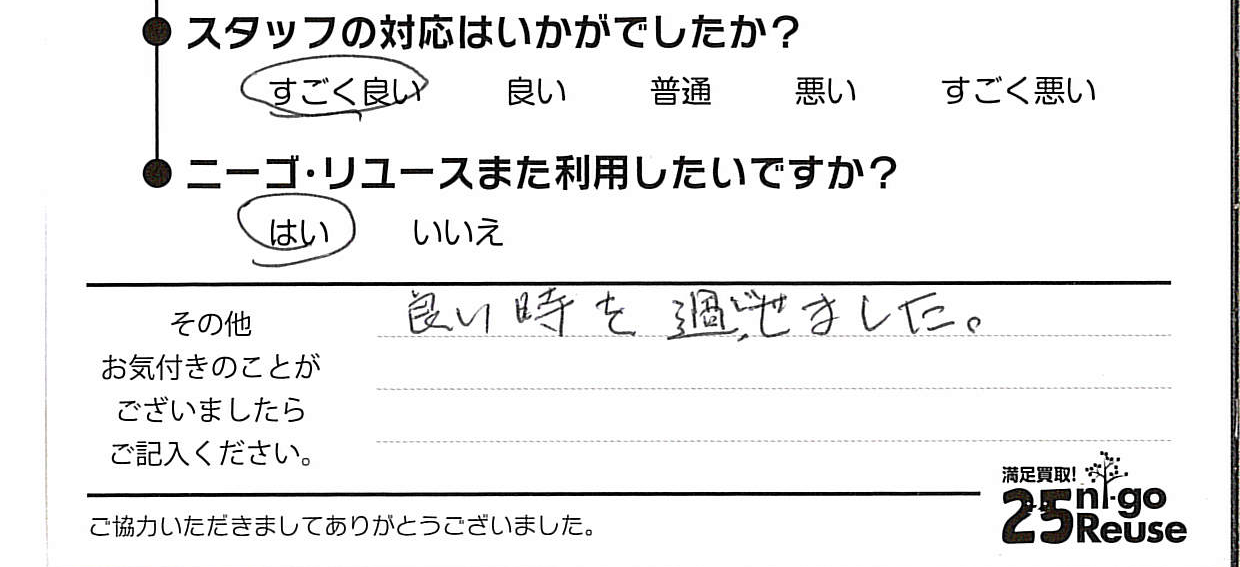 スタッフの対応はいかがでしたか？
すごく良い 良い 普通 悪い すごく悪い
ニーゴ・リユースまた利用したいですか？
はい いいえ
その他
お気付きのことが
ございましたら
ご記入ください。
良い時を過ごせました。
満足買取!
25 ni-go
Reuse
ご協力いただきましてありがとうございました。